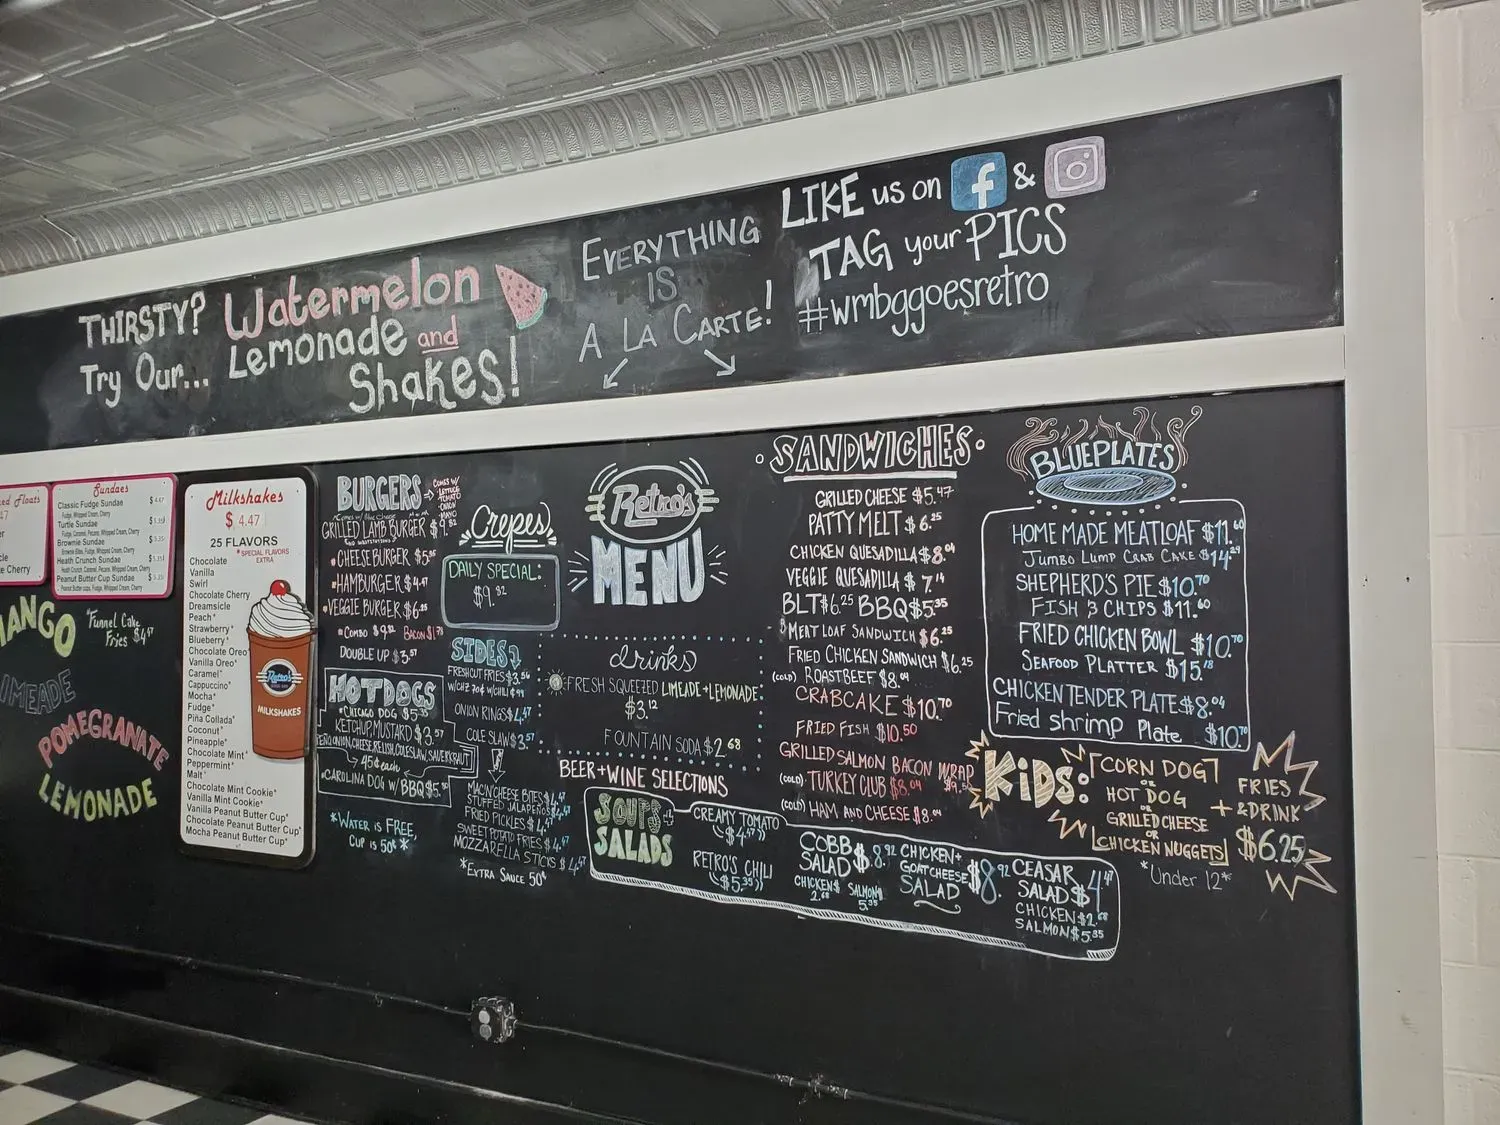 THIRSTY?
Try Our...
Watermelon
Lemonade and
Shakes!
EVERYTHING
IS
A LA CARTE!
LIKE us on f &
TAG your PICS
#wmbggoesretro
ed Floats
47
Cherry
Sundaes
Classic Fudge Sundae $ 4.47
Fudge, Whipped Cream, Cherry
Turtle Sundae
Fudge, Caramel, Pecans, Whipped Cream, Cherry
Brownie Sundae
Brownie Bites, Fudge, Whipped Cream, Cherry
Heath Crunch Sundae
Heath Crunch, Caramel, Pecans, Whipped Cream, Cherry
Peanut Butter Cup Sundae
Peanut Butter cups, Fudge, Whipped Cream, Cherry
ANGO
*Funnel Cake
Fries $4.47
IMEADE
POMEGRANATE
LEMONADE
Milkshakes
$ 4.47
25 FLAVORS
*SPECIAL FLAVORS
EXTRA
Chocolate
Vanilla
Swirl
Chocolate Cherry
Dreamsicle
Peach*
Strawberry*
Blueberry*
Chocolate Oreo*
Vanilla Oreo*
Caramel*
Cappuccino*
Mocha*
Fudge*
Piña Collada*
Coconut*
Pineapple*
Chocolate Mint*
Peppermint*
Malt*
Chocolate Mint Cookie*
Vanilla Mint Cookie*
Vanilla Peanut Butter Cup*
Chocolate Peanut Butter Cup*
Mocha Peanut Butter Cup*
Retro's
MILKSHAKES
BURGERS
COMES W/
LETTUCE
TOMATO
ONION
MAYO
GRILLED LAMB BURGER $9.82
CHEESEBURGER $5.35
HAMBURGER $4.47
VEGGIE BURGER $6.25
COMBO $9.82 BACON $1.78
DOUBLE UP $3.57
HOTDOGS
CHICAGO DOG $5.35
KETCHUP, MUSTARD $3.57
ONION, CHEESE, RELISH, COLESLAW, SAUERKRAUT
45¢ each
CAROLINA DOG W/ BBQ $5.
*WATER is FREE,
CUP is 50¢*
Crepes
DAILY SPECIAL:
$9.82
SIDES
FRESHCUT FRIES $3.56
ONION RINGS $4.47
COLE SLAW $3.57
MAC'N'CHEESE BITES $4.47
STUFFED JALAPENOS $4.47
FRIED PICKLES $4.47
SWEET POTATO FRIES $4.47
MOZZARELLA STICKS $4.47
*EXTRA SAUCE 50¢
Retro's
MENU
drinks
FRESH SQUEEZED LIMEADE + LEMONADE
$3.12
FOUNTAIN SODA $2.68
BEER + WINE SELECTIONS
SOUPS +
SALADS
CREAMY TOMATO
$4.47
RETRO'S CHILI
$5.35
COBB
SALAD $8.92
CHICKEN $
2.68
SALMON $
5.35
CHICKEN +
GOAT CHEESE
SALAD $8.92
CEASAR
SALAD $4.47
CHICKEN $2.68
SALMON $5.35
SANDWICHES
GRILLED CHEESE $5.47
PATTY MELT $6.25
CHICKEN QUESADILLA $8.04
VEGGIE QUESADILLA $7.14
BLT $6.25 BBQ $5.35
MEAT LOAF SANDWICH $6.25
FRIED CHICKEN SANDWICH $6.25
(COLD) ROAST BEEF $8.04
CRABCAKE $10.70
FRIED FISH $10.50
GRILLED SALMON BACON WRAP
(COLD) TURKEY CLUB $8.04
(COLD) HAM AND CHEESE $8.04
BLUEPLATES
HOME MADE MEATLOAF $11.60
JUMBO LUMP CRAB CAKE $14.29
SHEPHERD'S PIE $10.70
FISH & CHIPS $11.60
FRIED CHICKEN BOWL $10.70
SEAFOOD PLATTER $15.18
CHICKEN TENDER PLATE $8.04
Fried shrimp Plate $10.70
KiDS:
CORN DOG
OR
HOT DOG
OR
GRILLED CHEESE
OR
CHICKEN NUGGETS
+
FRIES
& DRINK
$6.25
*Under 12*